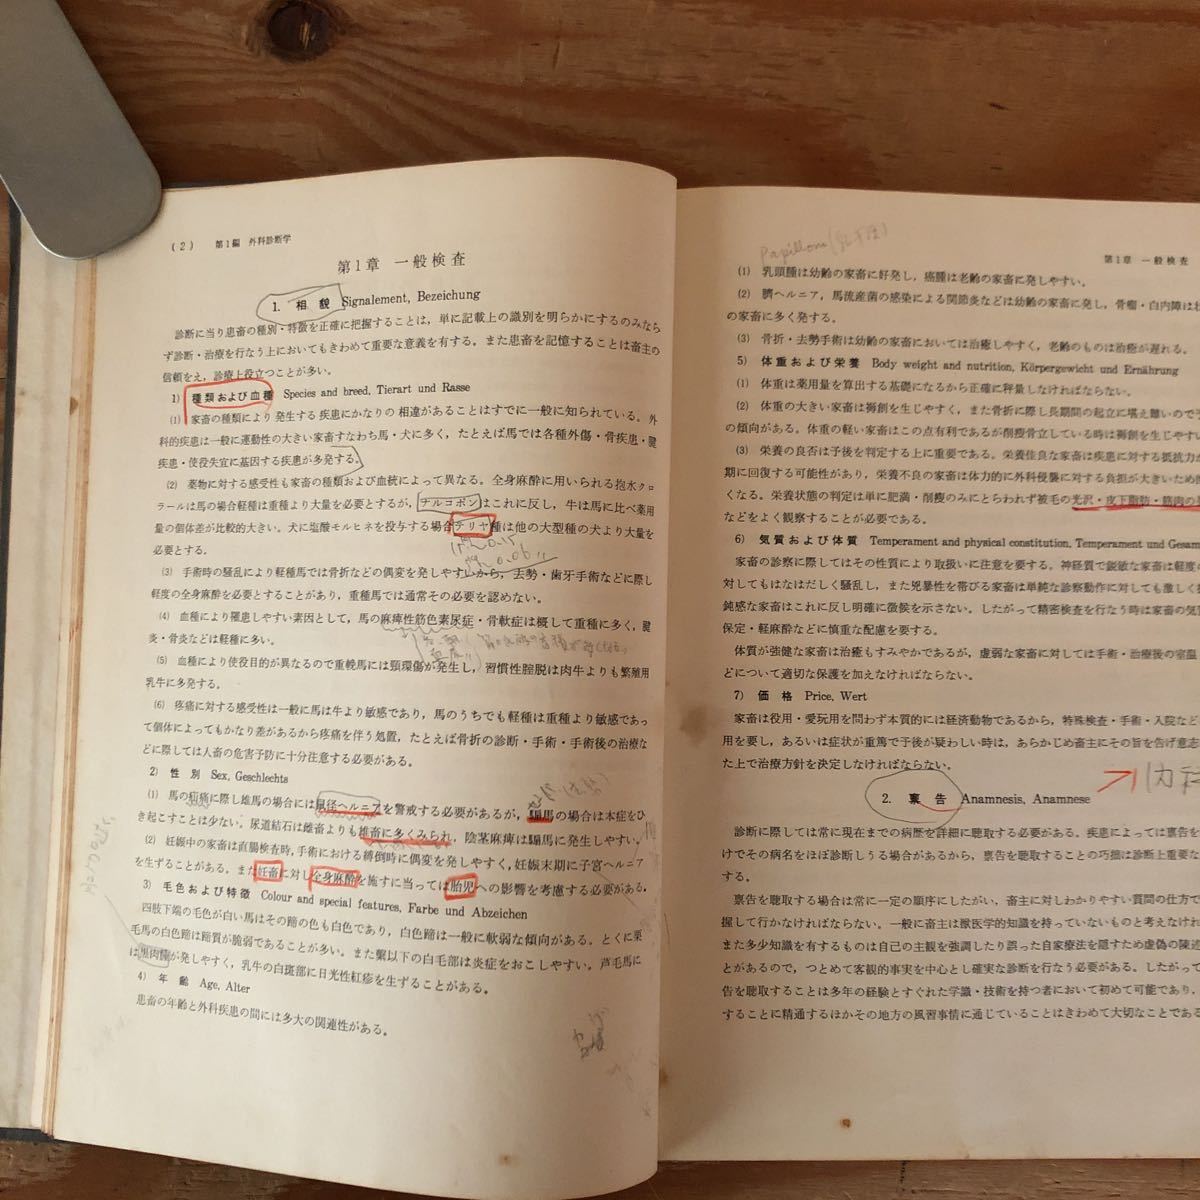 (2) 第1編 外科診断学
第1章 一般検査
1. 相貌 Signalement, Bezeichung
診断に当り患畜の種別・特徴を正確に把握することは，単に記載上の識別を明らかにするのみなら
ず診断・治療を行なう上においてもきわめて重要な意義を有する。また患畜を記憶することは畜主の
信頼をえ，診療上役立つことが多い。
1) 種類および血種 Species and breed, Tierart und Rasse
(1) 家畜の種類により発生する疾患にかなりの相違があることはすでに一般に知られている。外
科的疾患は一般に運動性の大きい家畜すなわち馬・犬に多く，たとえば馬では各種外傷・骨疾患・腱
疾患・使役失宜に基因する疾患が多発する。
(2) 薬物に対する感受性も家畜の種類および血統によって異なる。全身麻酔に用いられる抱水クロ
ラールは馬の場合軽種は重種より大量を必要とするが，ナルコポンはこれに反し，牛は馬に比べ薬用
量の個体差が比較的大きい。犬に塩酸モルヒネを投与する場合テリヤ種は他の大型種の犬より大量を
必要とする。
(3) 手術時の騒乱により軽種馬では骨折などの偶変を発しやすいから，去勢・歯牙手術などに際し
軽度の全身麻酔を必要とすることがあり，重種馬では通常その必要を認めない。
(4) 血種により罹患しやすい素因として，馬の麻痺性筋色素尿症・骨軟症は概して重種に多く，腱
炎・骨炎などは軽種に多い。
(5) 血種により使役目的が異なるので重輓馬には頸環傷が発生し，習慣性腟脱は肉牛よりも繁殖用
乳牛に多発する。
(6) 疼痛に対する感受性は一般に馬は牛より敏感であり，馬のうちでも軽種は重種より敏感であっ
て個体によってもかなり差があるから疼痛を伴う処置，たとえば骨折の診断・手術・手術後の治療な
どに際しては人畜の危害予防に十分注意する必要がある。
2) 性別 Sex, Geschlechts
(1) 馬の疝痛に際し雄馬の場合には鼠径ヘルニアを警戒する必要があるが，騸馬の場合は本症をひ
き起こすことは少ない。尿道結石は雌畜よりも雄畜に多くみられ，陰茎麻痺は騸馬に発生しやすい。
(2) 妊娠中の家畜は直腸検査時，手術における縛倒時に偶変を発しやすく，妊娠末期に子宮ヘルニア
を生ずることがある。また妊畜に対し全身麻酔を施すに当っては胎児への影響を考慮する必要がある。
3) 毛色および特徴 Colour and special features, Farbe und Abzeichen
四肢下端の毛色が白い馬はその蹄の色も白色であり，白色蹄は一般に軟弱な傾向がある。とくに栗
毛馬の白色蹄は蹄質が脆弱であることが多い。また繋以下の白毛部は炎症をおこしやすい。芦毛馬に
は黒肉腫が発しやすく，乳牛の白斑部に日光性紅疹を生ずることがある。
4) 年齢 Age, Alter
患畜の年齢と外科疾患の間には多大の関連性がある。
第1章 一般検査
(1) 乳頭腫は幼齢の家畜に好発し，癌腫は老齢の家畜に発しやすい。
(2) 臍ヘルニア，馬流産菌の感染による関節炎などは幼齢の家畜に発し，骨瘤・白内障は
の家畜に多く発する。
(3) 骨折・去勢手術は幼齢の家畜においては治癒しやすく，老齢のものは治癒が遅れる。
5) 体重および栄養 Body weight and nutrition, Körpergewicht und Ernährung
(1) 体重は薬用量を算出する基礎になるから正確に秤量しなければならない。
(2) 体重の大きい家畜は褥創を生じやすく，また骨折に際し長期間の起立に堪え難いので予
の傾向がある。体重の軽い家畜はこの点有利であるが削痩骨立している時は褥創を生じやす
(3) 栄養の良否は予後を判定する上に重要である。栄養佳良な家畜は疾患に対する抵抗力が
期に回復する可能性があり，栄養不良の家畜は体力的に外科侵襲に対する負担が大きいため
くなる。栄養状態の判定は単に肥満・削痩のみにとらわれず被毛の光沢・皮下脂肪・筋肉の
などをよく観察することが必要である。
6) 気質および体質 Temperament and physical constitution, Temperament und Gesam
家畜の診察に際してはその性質により取扱いに注意を要する。神経質で鋭敏な家畜は軽度の
対してもはなはだしく騒乱し，また兇暴性を帯びる家畜は単純な診察動作に対しても激しく
鈍感な家畜はこれに反し明確に徴候を示さない。したがって精密検査を行なう時は家畜の気
保定・軽麻酔などに慎重な配慮を要する。
体質が強健な家畜は治癒もすみやかであるが，虚弱な家畜に対しては手術・治療後の室温
どについて適切な保護を加えなければならない。
7) 価格 Price, Wert
家畜は役用・愛玩用を問わず本質的には経済動物であるから，特殊検査・手術・入院など
用を要し，あるいは症状が重篤で予後が疑わしい時は，あらかじめ畜主にその旨を告げ意志
た上で治療方針を決定しなければならない。
2. 稟告 Anamnesis, Anamnese
診断に際しては常に現在までの病歴を詳細に聴取する必要がある。疾患によっては稟告を
けでその病名をほぼ診断しうる場合があるから，稟告を聴取することの巧拙は診断上重要な
する。
稟告を聴取する場合は常に一定の順序にしたがい，畜主に対しわかりやすい質問の仕方で
握して行かなければならない。一般に畜主は獣医学的知識を持っていないものと考えなけれ
また多少知識を有するものは自己の主観を強調したり誤った自家療法を隠すため虚偽の陳述
とがあるので，つとめて客観的事実を中心とし確実な診断を行なう必要がある。したがって
告を聴取することは多年の経験とすぐれた学識・技術を持つ者において初めて可能であり，
することに精通するほかその地方の風習事情に通じていることはきわめて大切なことである